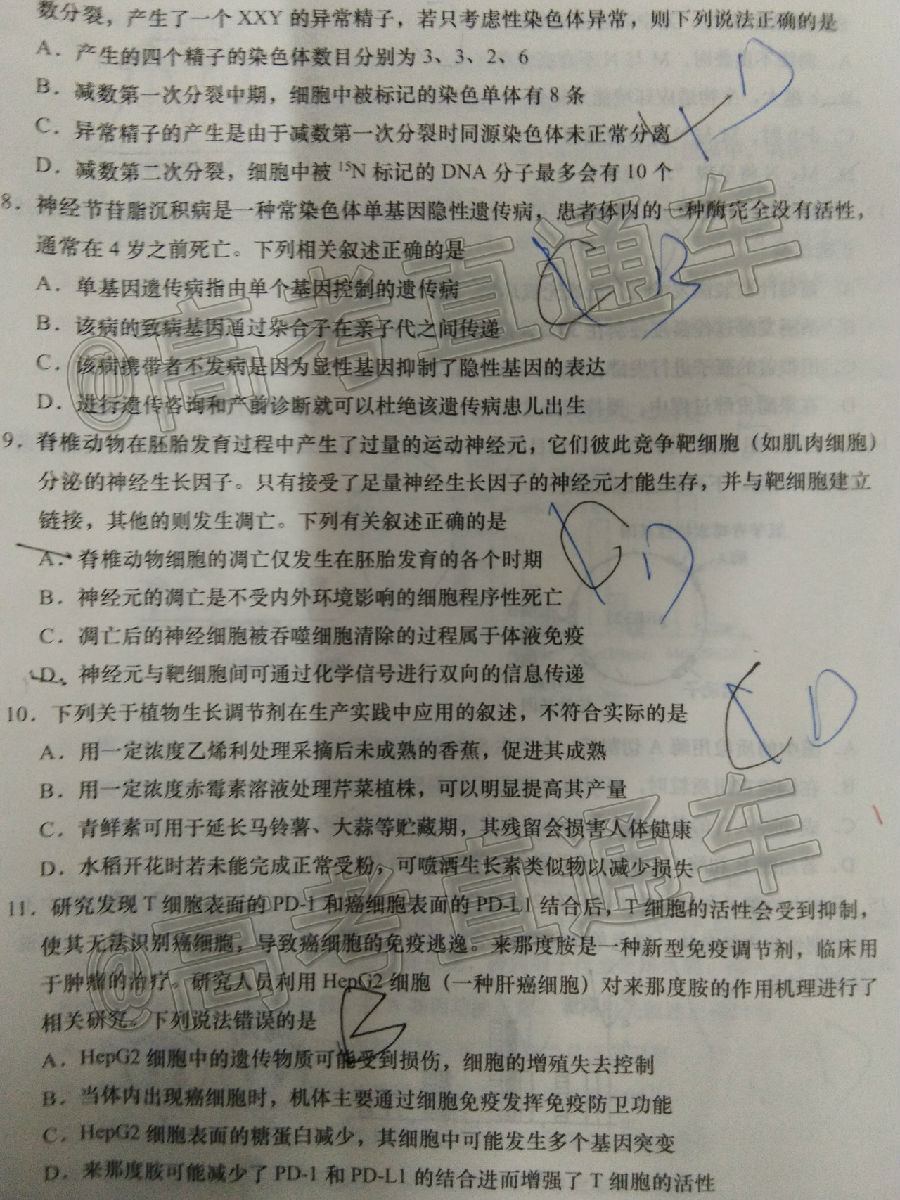 数分裂，产生了一个 XXY 的异常精子，若只考虑性染色体异常，则下列说法正确的是
A．产生的四个精子的染色体数目分别为 3、3、2、6
B．减数第一次分裂中期，细胞中被标记的染色单体有 8 条
C．异常精子的产生是由于减数第一次分裂时同源染色体未正常分离
D．减数第二次分裂，细胞中被 ¹⁵N 标记的 DNA 分子最多会有 10 个
8．神经节苷脂沉积病是一种常染色体单基因隐性遗传病，患者体内的一种酶完全没有活性，
通常在 4 岁之前死亡。下列相关叙述正确的是
A．单基因遗传病指由单个基因控制的遗传病
B．该病的致病基因通过杂合子在亲子代之间传递
C．该病携带者不发病是因为显性基因抑制了隐性基因的表达
D．进行遗传咨询和产前诊断就可以杜绝该遗传病患儿出生
9．脊椎动物在胚胎发育过程中产生了过量的运动神经元，它们彼此竞争靶细胞（如肌肉细胞）
分泌的神经生长因子。只有接受了足量神经生长因子的神经元才能生存，并与靶细胞建立
链接，其他的则发生凋亡。下列有关叙述正确的是
A．脊椎动物细胞的凋亡仅发生在胚胎发育的各个时期
B．神经元的凋亡是不受内外环境影响的细胞程序性死亡
C．凋亡后的神经细胞被吞噬细胞清除的过程属于体液免疫
D．神经元与靶细胞间可通过化学信号进行双向的信息传递
10．下列关于植物生长调节剂在生产实践中应用的叙述，不符合实际的是
A．用一定浓度乙烯利处理采摘后未成熟的香蕉，促进其成熟
B．用一定浓度赤霉素溶液处理芹菜植株，可以明显提高其产量
C．青鲜素可用于延长马铃薯、大蒜等贮藏期，其残留会损害人体健康
D．水稻开花时若未能完成正常受粉，可喷洒生长素类似物以减少损失
11．研究发现 T 细胞表面的 PD-1 和癌细胞表面的 PD-L1 结合后，T 细胞的活性会受到抑制，
使其无法识别癌细胞，导致癌细胞的免疫逃逸。来那度胺是一种新型免疫调节剂，临床用
于肿瘤的治疗。研究人员利用 HepG2 细胞（一种肝癌细胞）对来那度胺的作用机理进行了
相关研究。下列说法错误的是
A．HepG2 细胞中的遗传物质可能受到损伤，细胞的增殖失去控制
B．当体内出现癌细胞时，机体主要通过细胞免疫发挥免疫防卫功能
C．HepG2 细胞表面的糖蛋白减少，其细胞中可能发生多个基因突变
D．来那度胺可能减少了 PD-1 和 PD-L1 的结合进而增强了 T 细胞的活性
D
B
D
D
B
@高考直通车
@高考直通车